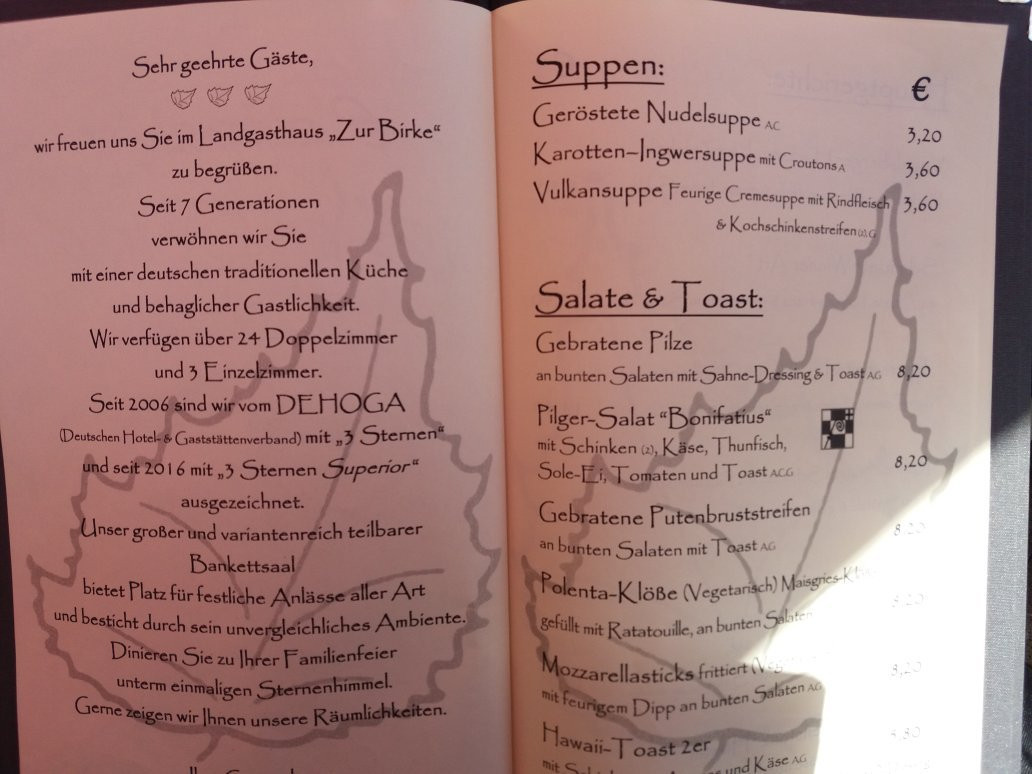 Sehr geehrte Gäste,
wir freuen uns Sie im Landgasthaus „Zur Birke“
zu begrüßen.
Seit 7 Generationen
verwöhnen wir Sie
mit einer deutschen traditionellen Küche
und behaglicher Gastlichkeit.
Wir verfügen über 24 Doppelzimmer
und 3 Einzelzimmer.
Seit 2006 sind wir vom DEHOGA
(Deutschen Hotel- & Gaststättenverband) mit „3 Sternen“
und seit 2016 mit „3 Sternen Superior“
ausgezeichnet.
Unser großer und variantenreich teilbarer
Bankettsaal
bietet Platz für festliche Anlässe aller Art
und besticht durch sein unvergleichliches Ambiente.
Dinieren Sie zu Ihrer Familienfeier
unterm einmaligen Sternenhimmel.
Gerne zeigen wir Ihnen unsere Räumlichkeiten.
Suppen: €
Geröstete Nudelsuppe AC 3,20
Karotten–Ingwersuppe mit Croutons A 3,60
Vulkansuppe Feurige Cremesuppe mit Rindfleisch 3,60
& Kochschinkenstreifen (2), G
Salate & Toast:
Gebratene Pilze
an bunten Salaten mit Sahne-Dressing & Toast AG 8,20
Pilger-Salat “Bonifatius“
mit Schinken (2), Käse, Thunfisch,
Sole-Ei, Tomaten und Toast ACG 8,20
Gebratene Putenbruststreifen
an bunten Salaten mit Toast AG 8,20
Polenta-Klöße (Vegetarisch)
gefüllt mit Ratatouille, an bunten Salaten 8,20
Mozzarellasticks frittiert
mit feurigem Dipp an bunten Salaten AG 8,20
Hawaii-Toast 2er
und Käse AG